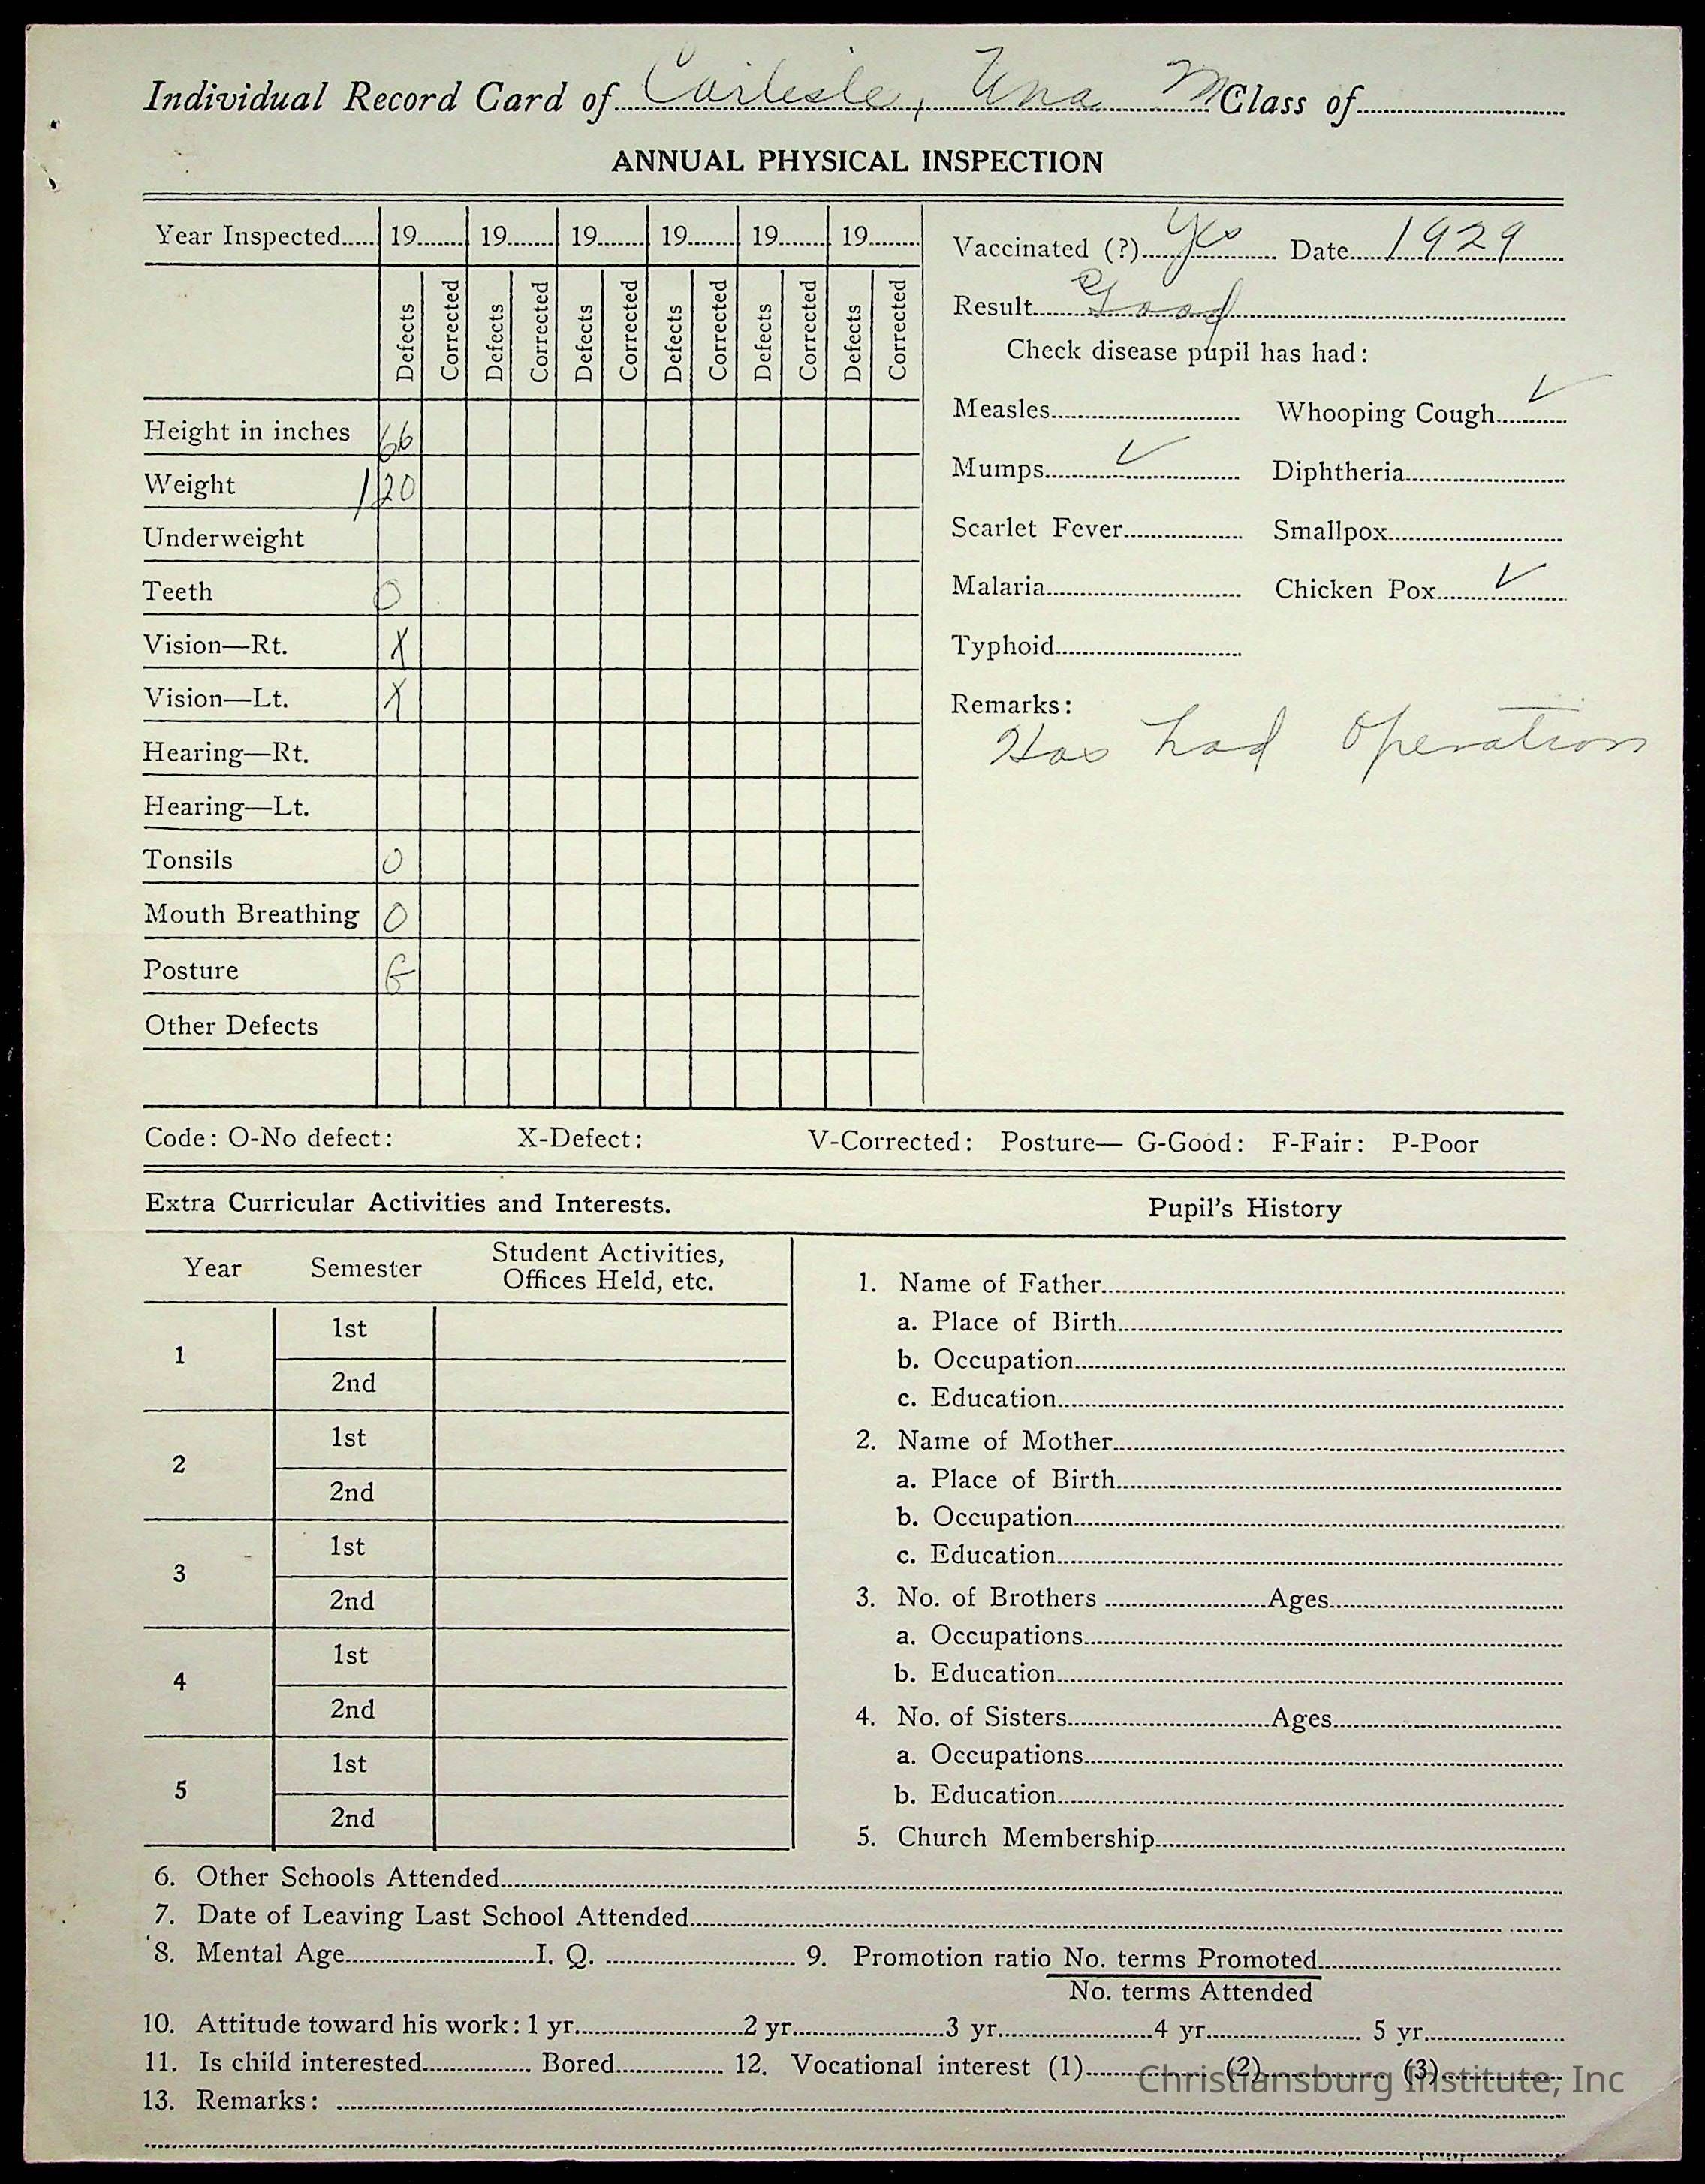 Individual Record Card of Carlisle, Una M Class of
ANNUAL PHYSICAL INSPECTION
Year Inspected 19 19 19 19 19 19
Defects Corrected Defects Corrected Defects Corrected Defects Corrected Defects Corrected Defects Corrected
Height in inches 66
Weight 120
Underweight
Teeth O
Vision—Rt. X
Vision—Lt. X
Hearing—Rt.
Hearing—Lt.
Tonsils O
Mouth Breathing O
Posture G
Other Defects
Vaccinated (?) Yes Date 1929
Result Good
Check disease pupil has had:
Measles Whooping Cough ✓
Mumps ✓ Diphtheria
Scarlet Fever Smallpox
Malaria Chicken Pox ✓
Typhoid
Remarks:
Has had Operation
Code: O-No defect: X-Defect: V-Corrected: Posture— G-Good: F-Fair: P-Poor
Extra Curricular Activities and Interests.
Year Semester Student Activities,
Offices Held, etc.
1 1st
2nd
2 1st
2nd
3 1st
2nd
4 1st
2nd
5 1st
2nd
Pupil's History
1. Name of Father
a. Place of Birth
b. Occupation
c. Education
2. Name of Mother
a. Place of Birth
b. Occupation
c. Education
3. No. of Brothers Ages
a. Occupations
b. Education
4. No. of Sisters Ages
a. Occupations
b. Education
5. Church Membership
6. Other Schools Attended
7. Date of Leaving Last School Attended
8. Mental Age I. Q. 9. Promotion ratio No. terms Promoted
No. terms Attended
10. Attitude toward his work: 1 yr. 2 yr. 3 yr. 4 yr. 5 yr.
11. Is child interested Bored 12. Vocational interest (1) (2) (3)
Christiansburg Institute, Inc
13. Remarks: